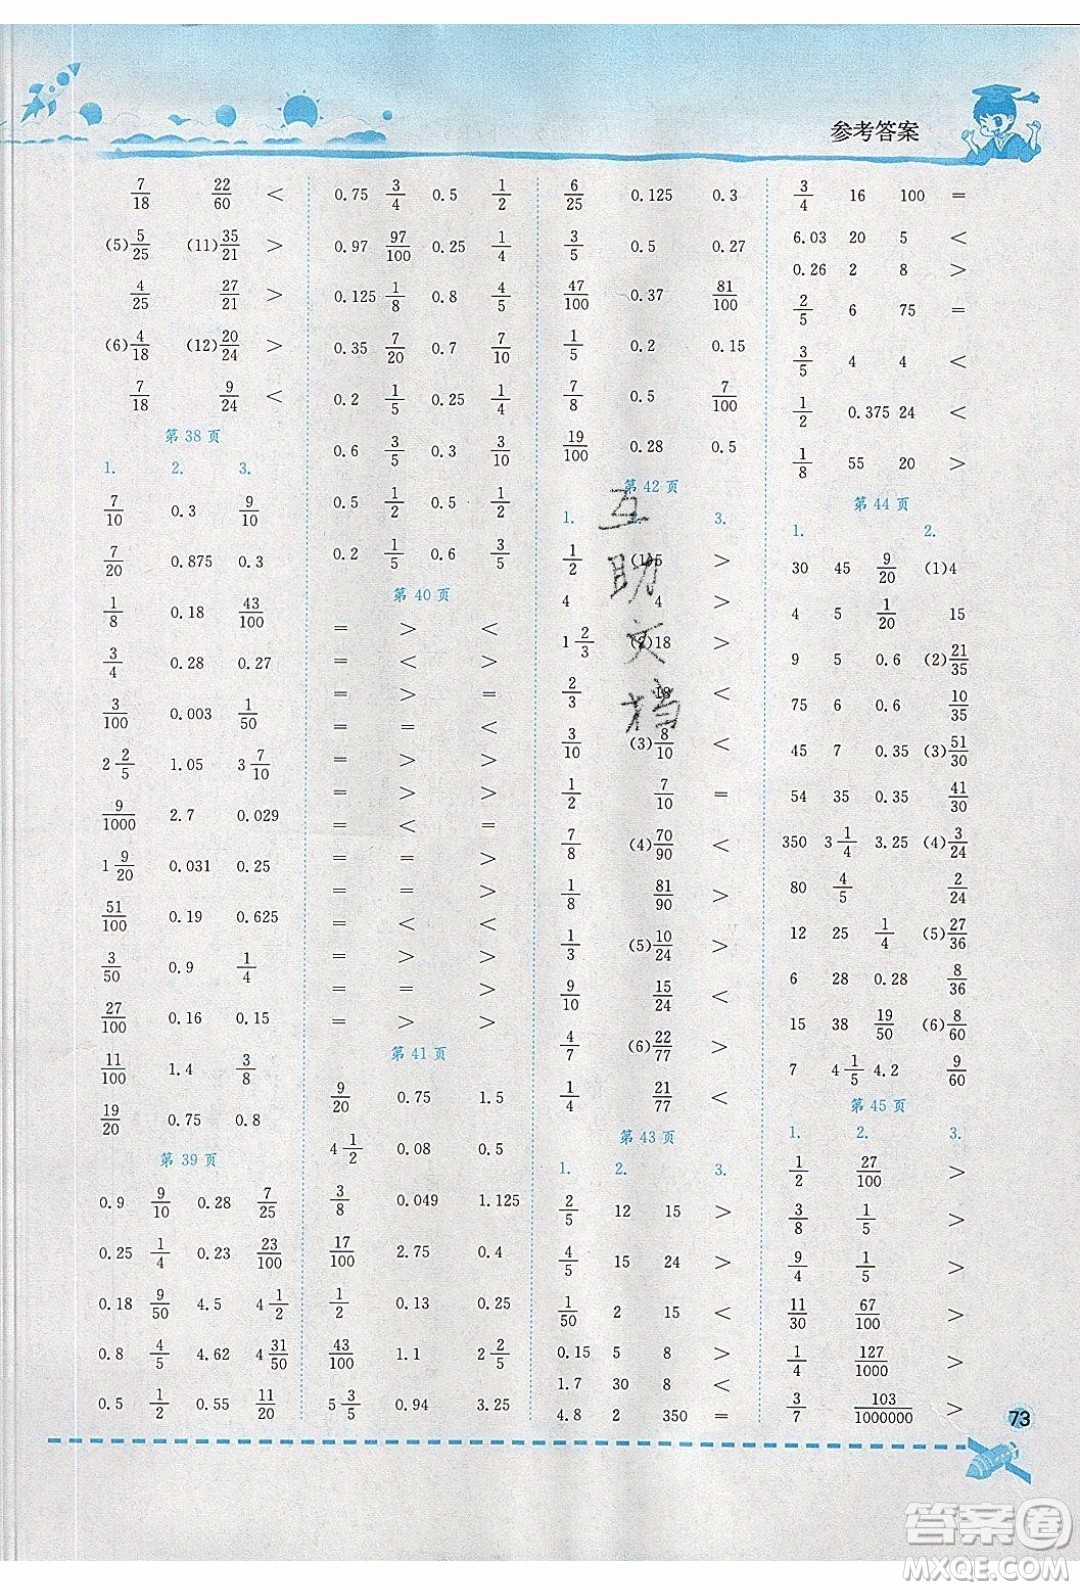 参考答案
7/18 22/60 <
(5)5/25 (11)35/21 >
4/25 27/21 >
(6)4/18 (12)20/24 >
7/18 9/24 <
第 38 页
1. 2. 3.
7/10 0.3 9/10
7/20 0.875 0.3
1/8 0.18 43/100
3/4 0.28 0.27
3/100 0.003 1/50
2 2/5 1.05 3 7/10
9/1000 2.7 0.029
1 9/20 0.031 0.25
51/100 0.19 0.625
3/50 0.9 1/4
27/100 0.16 0.15
11/100 1.4 3/8
19/20 0.75 0.8
第 39 页
0.9 9/10 0.28 7/25
0.25 1/4 0.23 23/100
0.18 9/50 4.5 4 1/2
0.8 4/5 4.62 4 31/50
0.5 1/2 0.55 11/20
0.75 3/4 0.5 1/2
0.97 97/100 0.25 1/4
0.125 1/8 0.8 4/5
0.35 7/20 0.7 7/10
0.2 1/5 0.25 1/4
0.6 3/5 0.3 3/10
0.5 1/2 0.5 1/2
0.2 1/5 0.6 3/5
第 40 页
= > <
= < >
= > >
= = <
= > >
= > >
= < =
= = >
= = >
= < <
= > >
= = >
= > >
第 41 页
9/20 0.75 1.5
4 1/2 0.08 0.5
3/8 0.049 1.125
17/100 2.75 0.4
1/2 0.13 0.25
43/100 1.1 2 2/5
5 3/5 0.94 3.25
6/25 0.125 0.3
3/5 0.5 0.27
47/100 0.37 81/100
1/5 0.2 0.15
7/8 0.5 7/100
19/100 0.28 0.5
第 42 页
1. 3.
1/2 (1)5 >
4 4 >
1 2/3 (2)18 >
2/3 18 <
3/10 (3)8/10 <
1/2 7/10 =
7/8 (4)70/90 <
1/8 81/90 >
1/3 (5)10/24 >
9/10 15/24 <
4/7 (6)22/77 >
1/4 21/77 <
第 43 页
1. 2. 3.
2/5 12 15 >
4/5 15 24 >
1/50 2 15 <
0.15 5 8 >
1.7 30 8 <
4.8 2 350 =
3/4 16 100 =
6.03 20 5 <
0.26 2 8 >
2/5 6 75 =
3/5 4 4 <
1/2 0.375 24 <
1/8 55 20 >
第 44 页
1. 2.
30 45 9/20 (1)4
4 5 1/20 15
9 5 0.6 (2)21/35
75 6 0.6 10/35
45 7 0.35 (3)51/30
54 35 0.35 41/30
350 3 1/4 3.25 (4)3/24
80 4/5 2/24
12 25 1/4 (5)27/36
6 28 0.28 8/36
15 38 19/50 (6)8/60
7 4 1/5 4.2 9/60
第 45 页
1. 2. 3.
1/2 27/100 >
3/8 1/5 >
9/4 1/5 >
11/30 67/100 >
1/4 127/1000 >
3/7 103/1000000 >
73
互助文档
答案卷
MXQE.COM